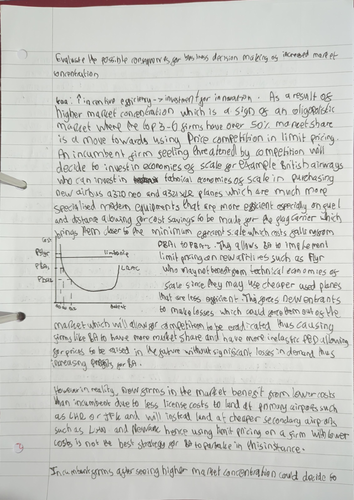 Evaluate the possible consequences for business decision making of increased market
concentration
↑ in dynamic efficiency -> investment for innovation. As a result of
higher market concentration which is a sign of an oligopolistic
market where the top 3-6 firms have over 50% market share
is a move towards using Price competition in limit pricing.
An incumbent firm feeling threatened by competition will
decide to invest in economies of scale for example British airways
who can invest in technical economies of scale in purchasing
new airbus a320 neo and a321 XLR planes which are much more
specialised modern equipments that are more efficient especially on fuel
and distance allowing for cost savings to be made for the flag carrier which
brings them closer to the minimum efficient scale which costs falls from
PBA1 to PBA2. This allows BA to implement
limit pricing on new airlines such as Flyr
who may not benefit from technical economies of
scale since they may use cheaper used planes
that are less efficient. This forces new entrants
to make losses which force them out of the
market which will allow for competition to be eradicated thus causing
firms like BA to have more market share and have more inelastic PED allowing
for prices to be raised in the future without significant losses in demand thus
increasing profits for BA.
Cost
PFlyr
PBA1
PBA2
limit price
LRAC
Output
However in reality, new firms in the market benefit from lower costs
than incumbent due to less license costs to land at primary airports such
as LHR or JFK and will instead land at cheaper secondary airports
such as and hence using limit pricing on a firm with lower
costs is not the best strategy for BA to partake in this instance.
3
Incumbent firms after seeing higher market concentration could decide to